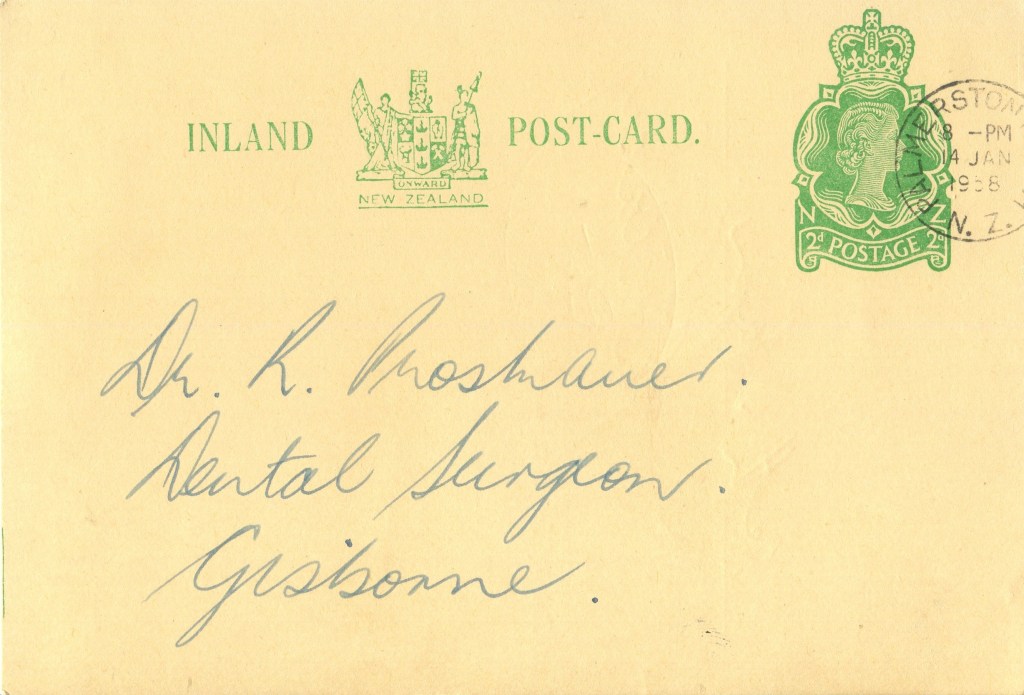 INLAND POST-CARD.
ONWARD
NEW ZEALAND
N Z
2d POSTAGE 2d
PALMERSTON
8 -PM
14 JAN
1958
N. Z.
Dr. R.
Dental Surgeon.
Gisborne.